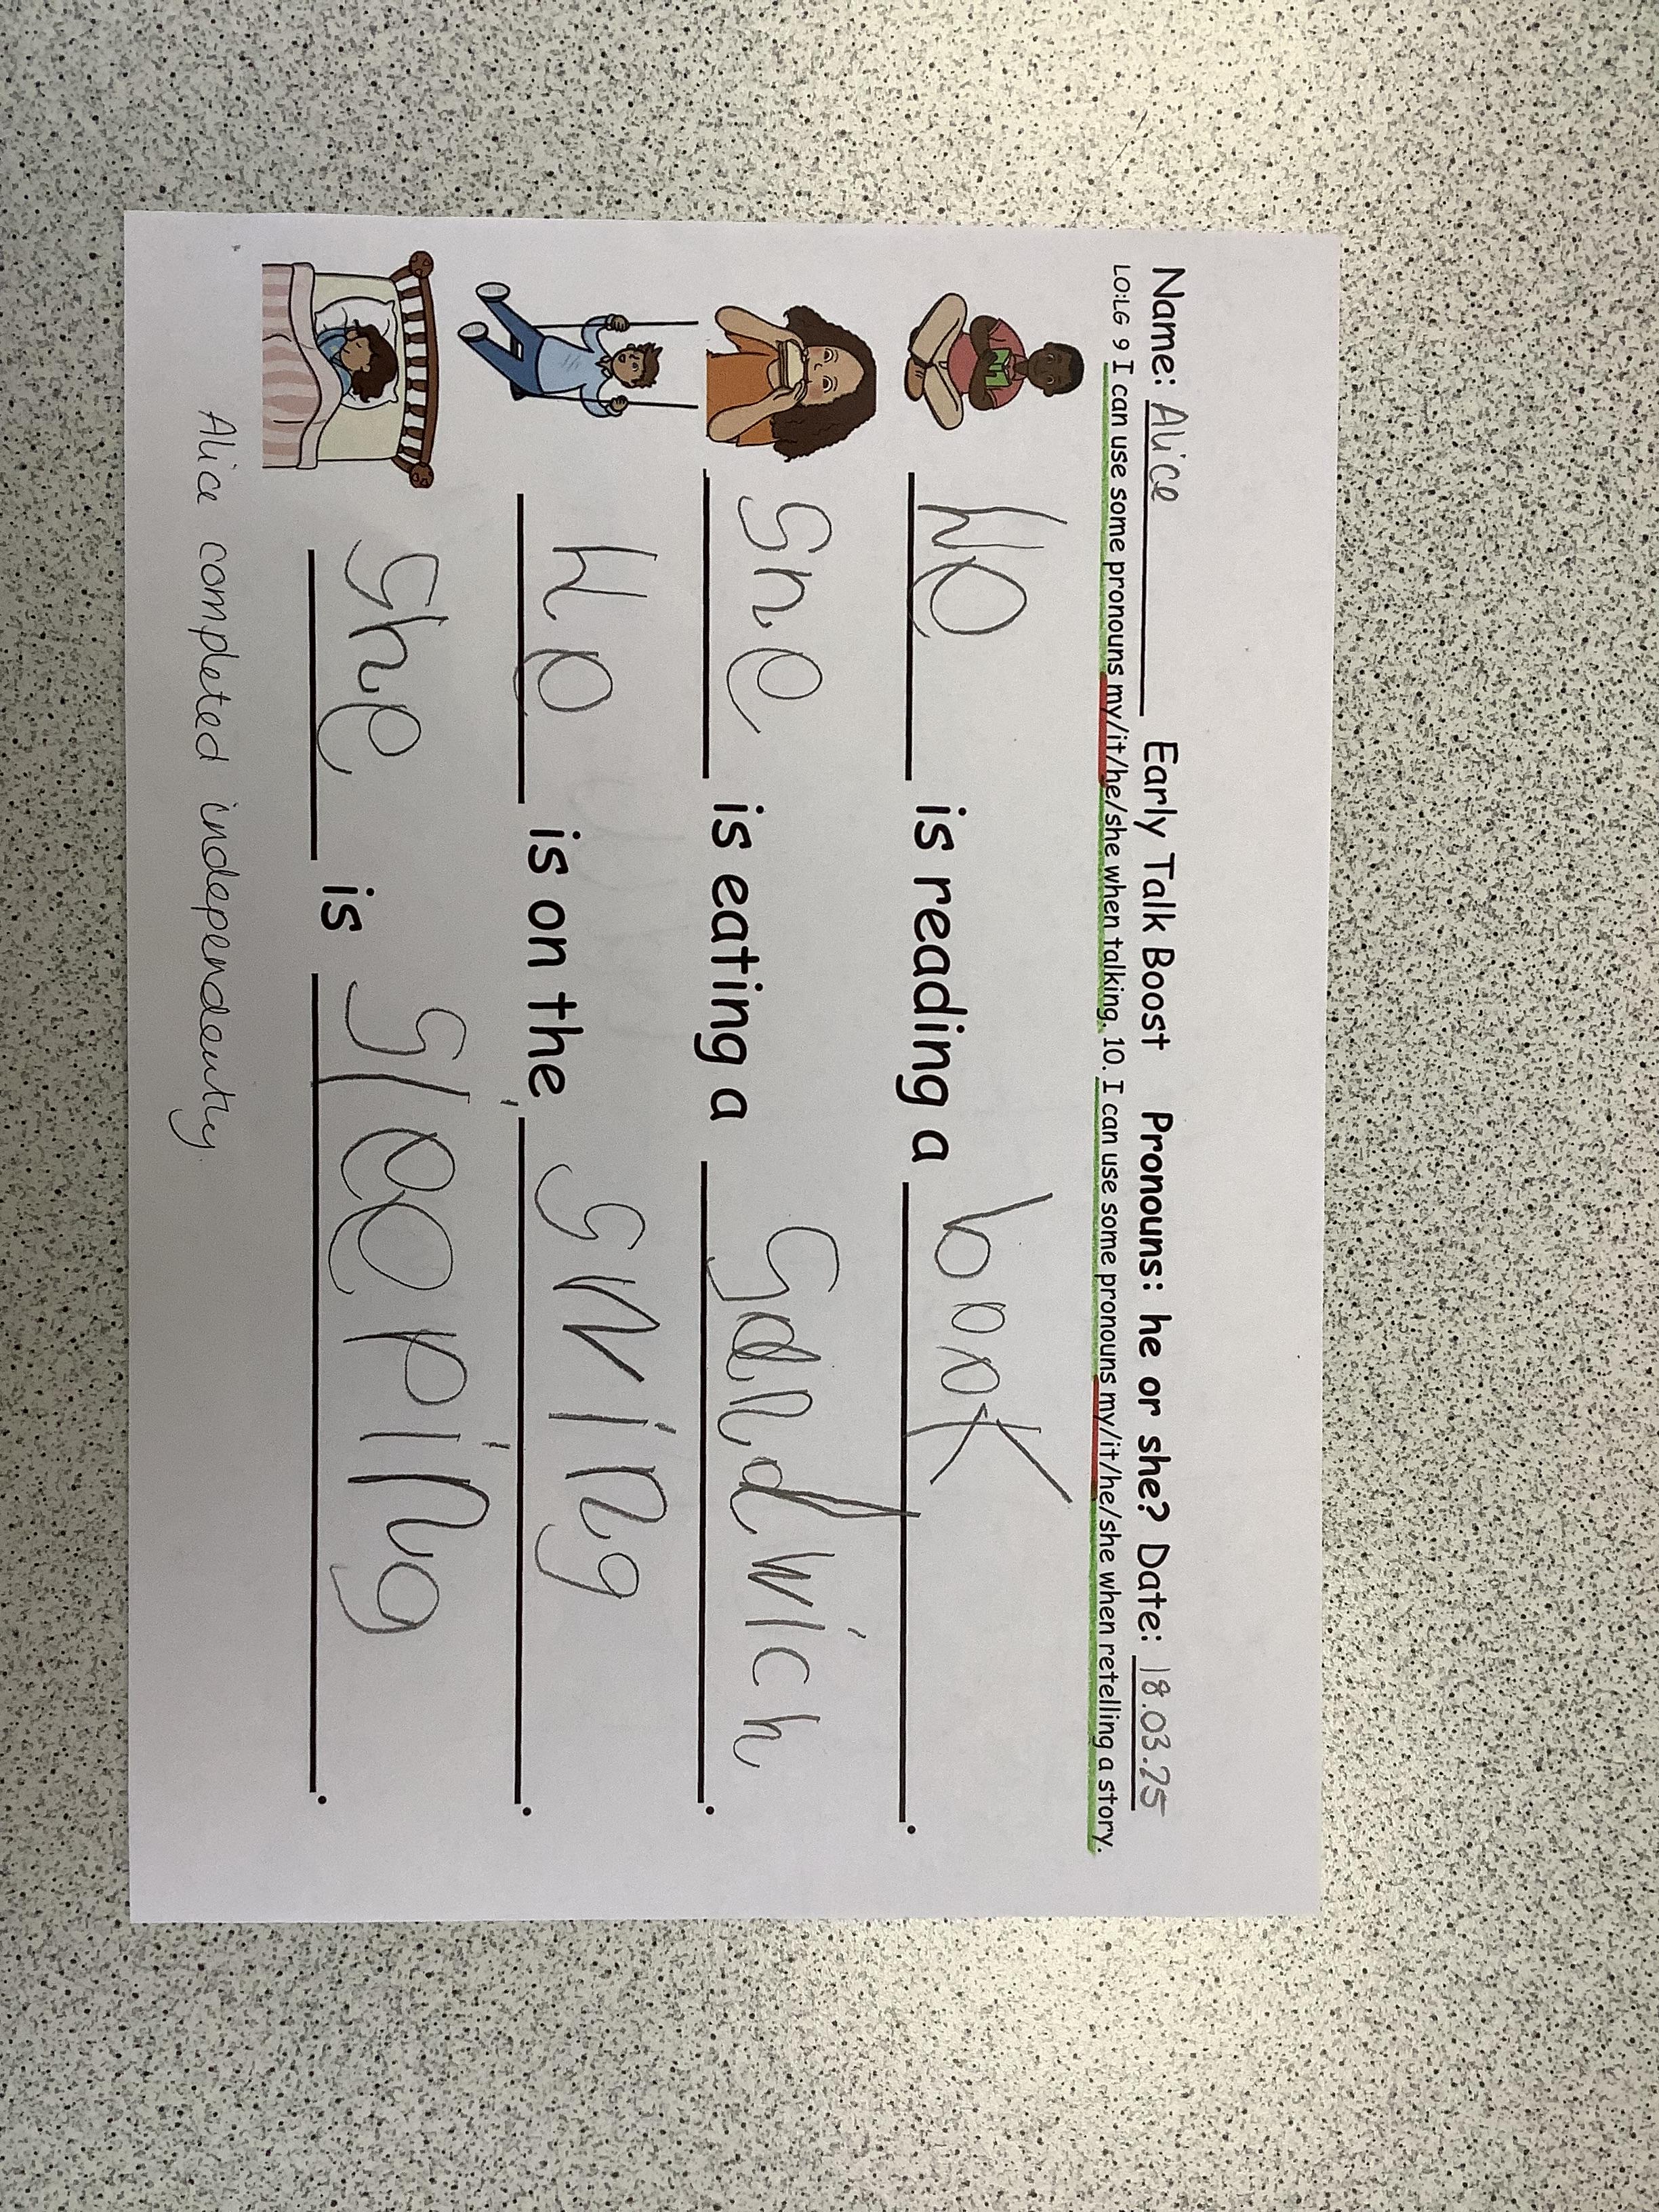 Name: Alice Early Talk Boost Pronouns: he or she? Date: 18.03.25
LO:LG 9 I can use some pronouns my/it/he/she when talking. 10. I can use some pronouns my/it/he/she when retelling a story.
He is reading a book.
She is eating a sandwich.
He is on the swing.
She is sleeping.
Alice completed independently.